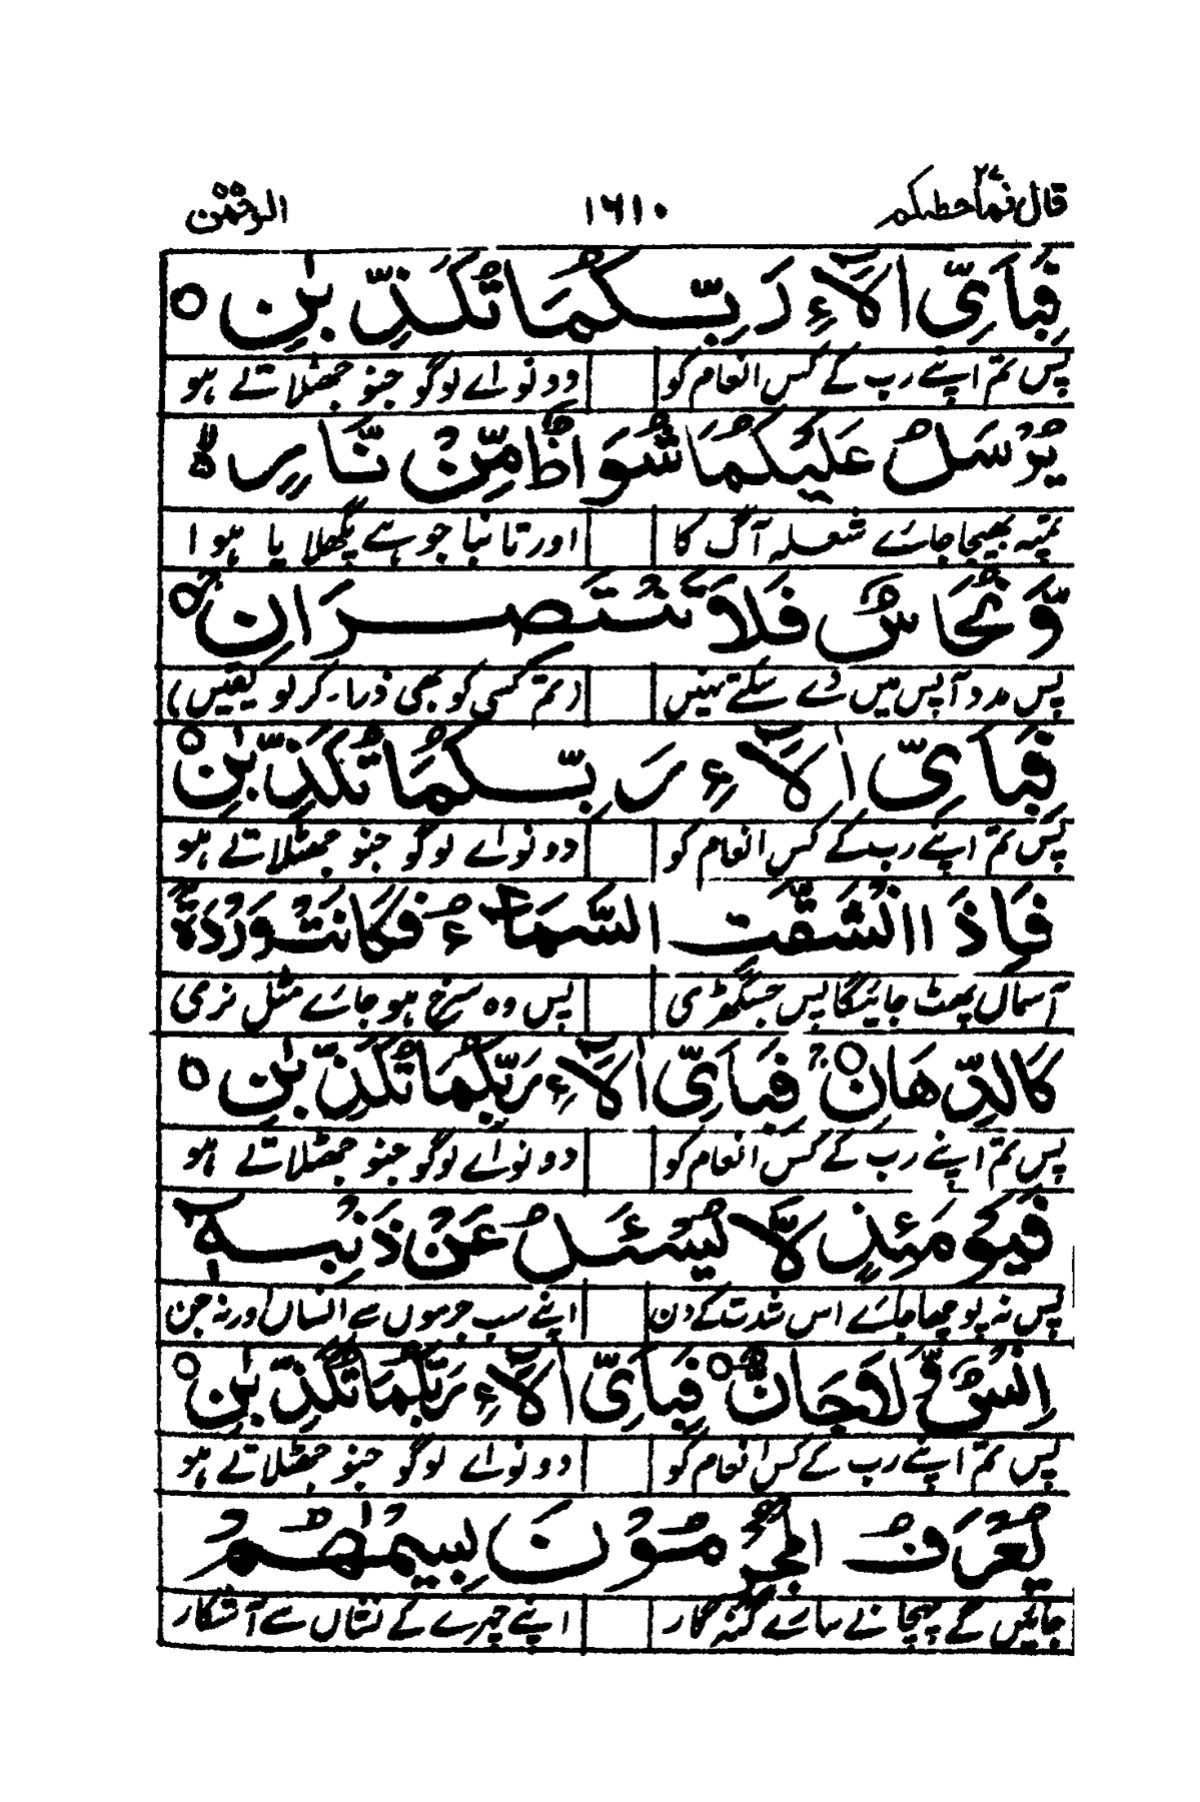 قال فما خطبکم ٢٧ ١٦١٠ الرحمٰن ٥٥
فَبِاَیِّ اٰلَآءِ رَبِّکُمَا تُکَذِّبٰنِ ○
پس تم اپنے رب کے کس انعام کو دونو اے لوگو جنو جھٹلاتے ہو
یُرْسَلُ عَلَیْکُمَا شُوَاظٌ مِّنْ نَّارٍ ۙ
تمپہ بھیجا جاۓ شعلہ آگ کا اور تانبا جو ہے پگھلایا ہوا
وَّ نُحَاسٌ فَلَا تَنْتَصِرَانِ ○
پس مدد آپس میں دے سکتے نہیں (تم کسی کو بھی ذرا۔کر لو یقیں)
فَبِاَیِّ اٰلَآءِ رَبِّکُمَا تُکَذِّبٰنِ ○
پس تم اپنے رب کے کس انعام کو دونو اے لوگو جنو جھٹلاتے ہو
فَاِذَا انْشَقَّتِ السَّمَآءُ فَکَانَتْ وَرْدَةً
آسماں پھٹ جائیگا پس جس گھڑی پس وہ سرخ ہو جاۓ مثل نری
کَالدِّهَانِ ○ فَبِاَیِّ اٰلَآءِ رَبِّکُمَا تُکَذِّبٰنِ ○
پس تم اپنے رب کے کس انعام کو دونو اے لوگو جنو جھٹلاتے ہو
فَیَوْمَئِذٍ لَّا یُسْئَلُ عَنْ ذَنْۢبِهٖۤ
پس نہ پوچھا جاۓ اس شدت کے دن اپنے سب جرموں سے انساں اور نہ جن
اِنْسٌ وَّ لَا جَآنٌّ ○ فَبِاَیِّ اٰلَآءِ رَبِّکُمَا تُکَذِّبٰنِ ○
پس تم اپنے رب کے کس انعام کو دونو اے لوگو جنو جھٹلاتے ہو
یُعْرَفُ الْمُجْرِمُوْنَ بِسِیْمٰهُمْ
جائیں گے پہچانے سارے گنہ گار اپنے چہرے کے نشاں سے آشکار